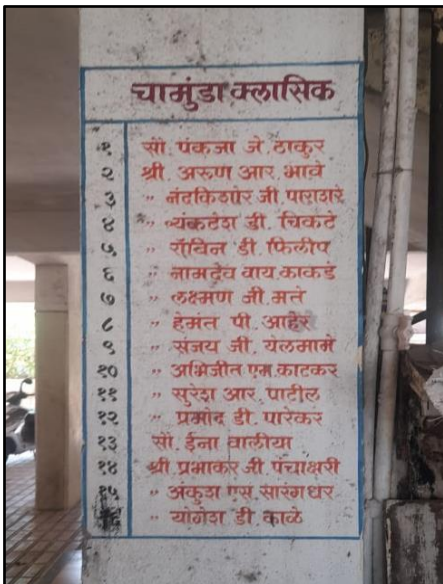 चामुंडा क्लासिक
१ सौ. पंकजा जे. ठाकुर
२ श्री. अरुण आर. भावे
३ " नंदकिशोर जी. पाराशरे
४ " व्यंकटेश डी. चिकटे
५ " रॉबिन डी. फिलीप
६ " नामदेव वाय. काकडे
७ " लक्ष्मण जी. मते
८ " हेमंत पी. आहेर
९ " संजय जी. येलमामे
१० " अभिजीत एम. काटकर
११ " सुरेश आर. पाटील
१२ " प्रमोद डी. पारेकर
१३ सौ. ईना वालीया
१४ श्री प्रभाकर जी. पंचाक्षरी
१५ " अंकुश एस. सारंगधर
" योगेश डी. काळे